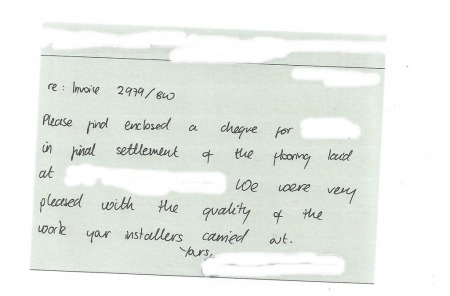 re: Invoie 2979/BW
Please find enclosed a cheque for
in final settlement of the flooring laid
at We were very
pleased with the quality of the
work your installers carried out.
Yours,